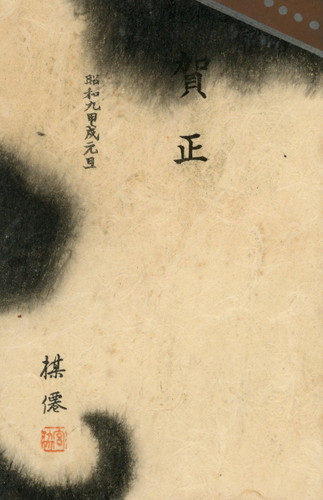 賀正
昭和九甲戌元旦
楳僊